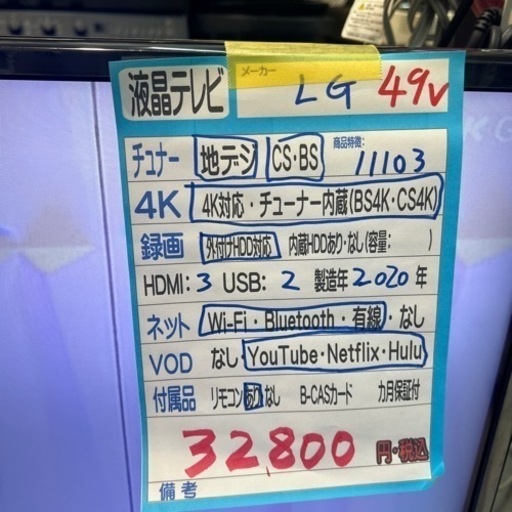 液晶テレビ メーカー LG 49v
チューナー 地デジ CS・BS 商品特徴: 11103
4K 4K対応・チューナー内蔵(BS4K・CS4K)
録画 外付けHDD対応 内蔵HDDあり・なし(容量: )
HDMI: 3 USB: 2 製造年2020年
ネット Wi-Fi・Bluetooth・有線・なし
VOD なし YouTube・Netflix・Hulu
付属品 リモコンあり・なし B-CASカード カ月保証付
32,800 円・税込
備考